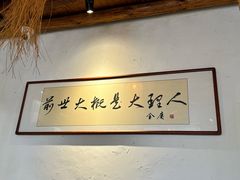 前世大概是大理人